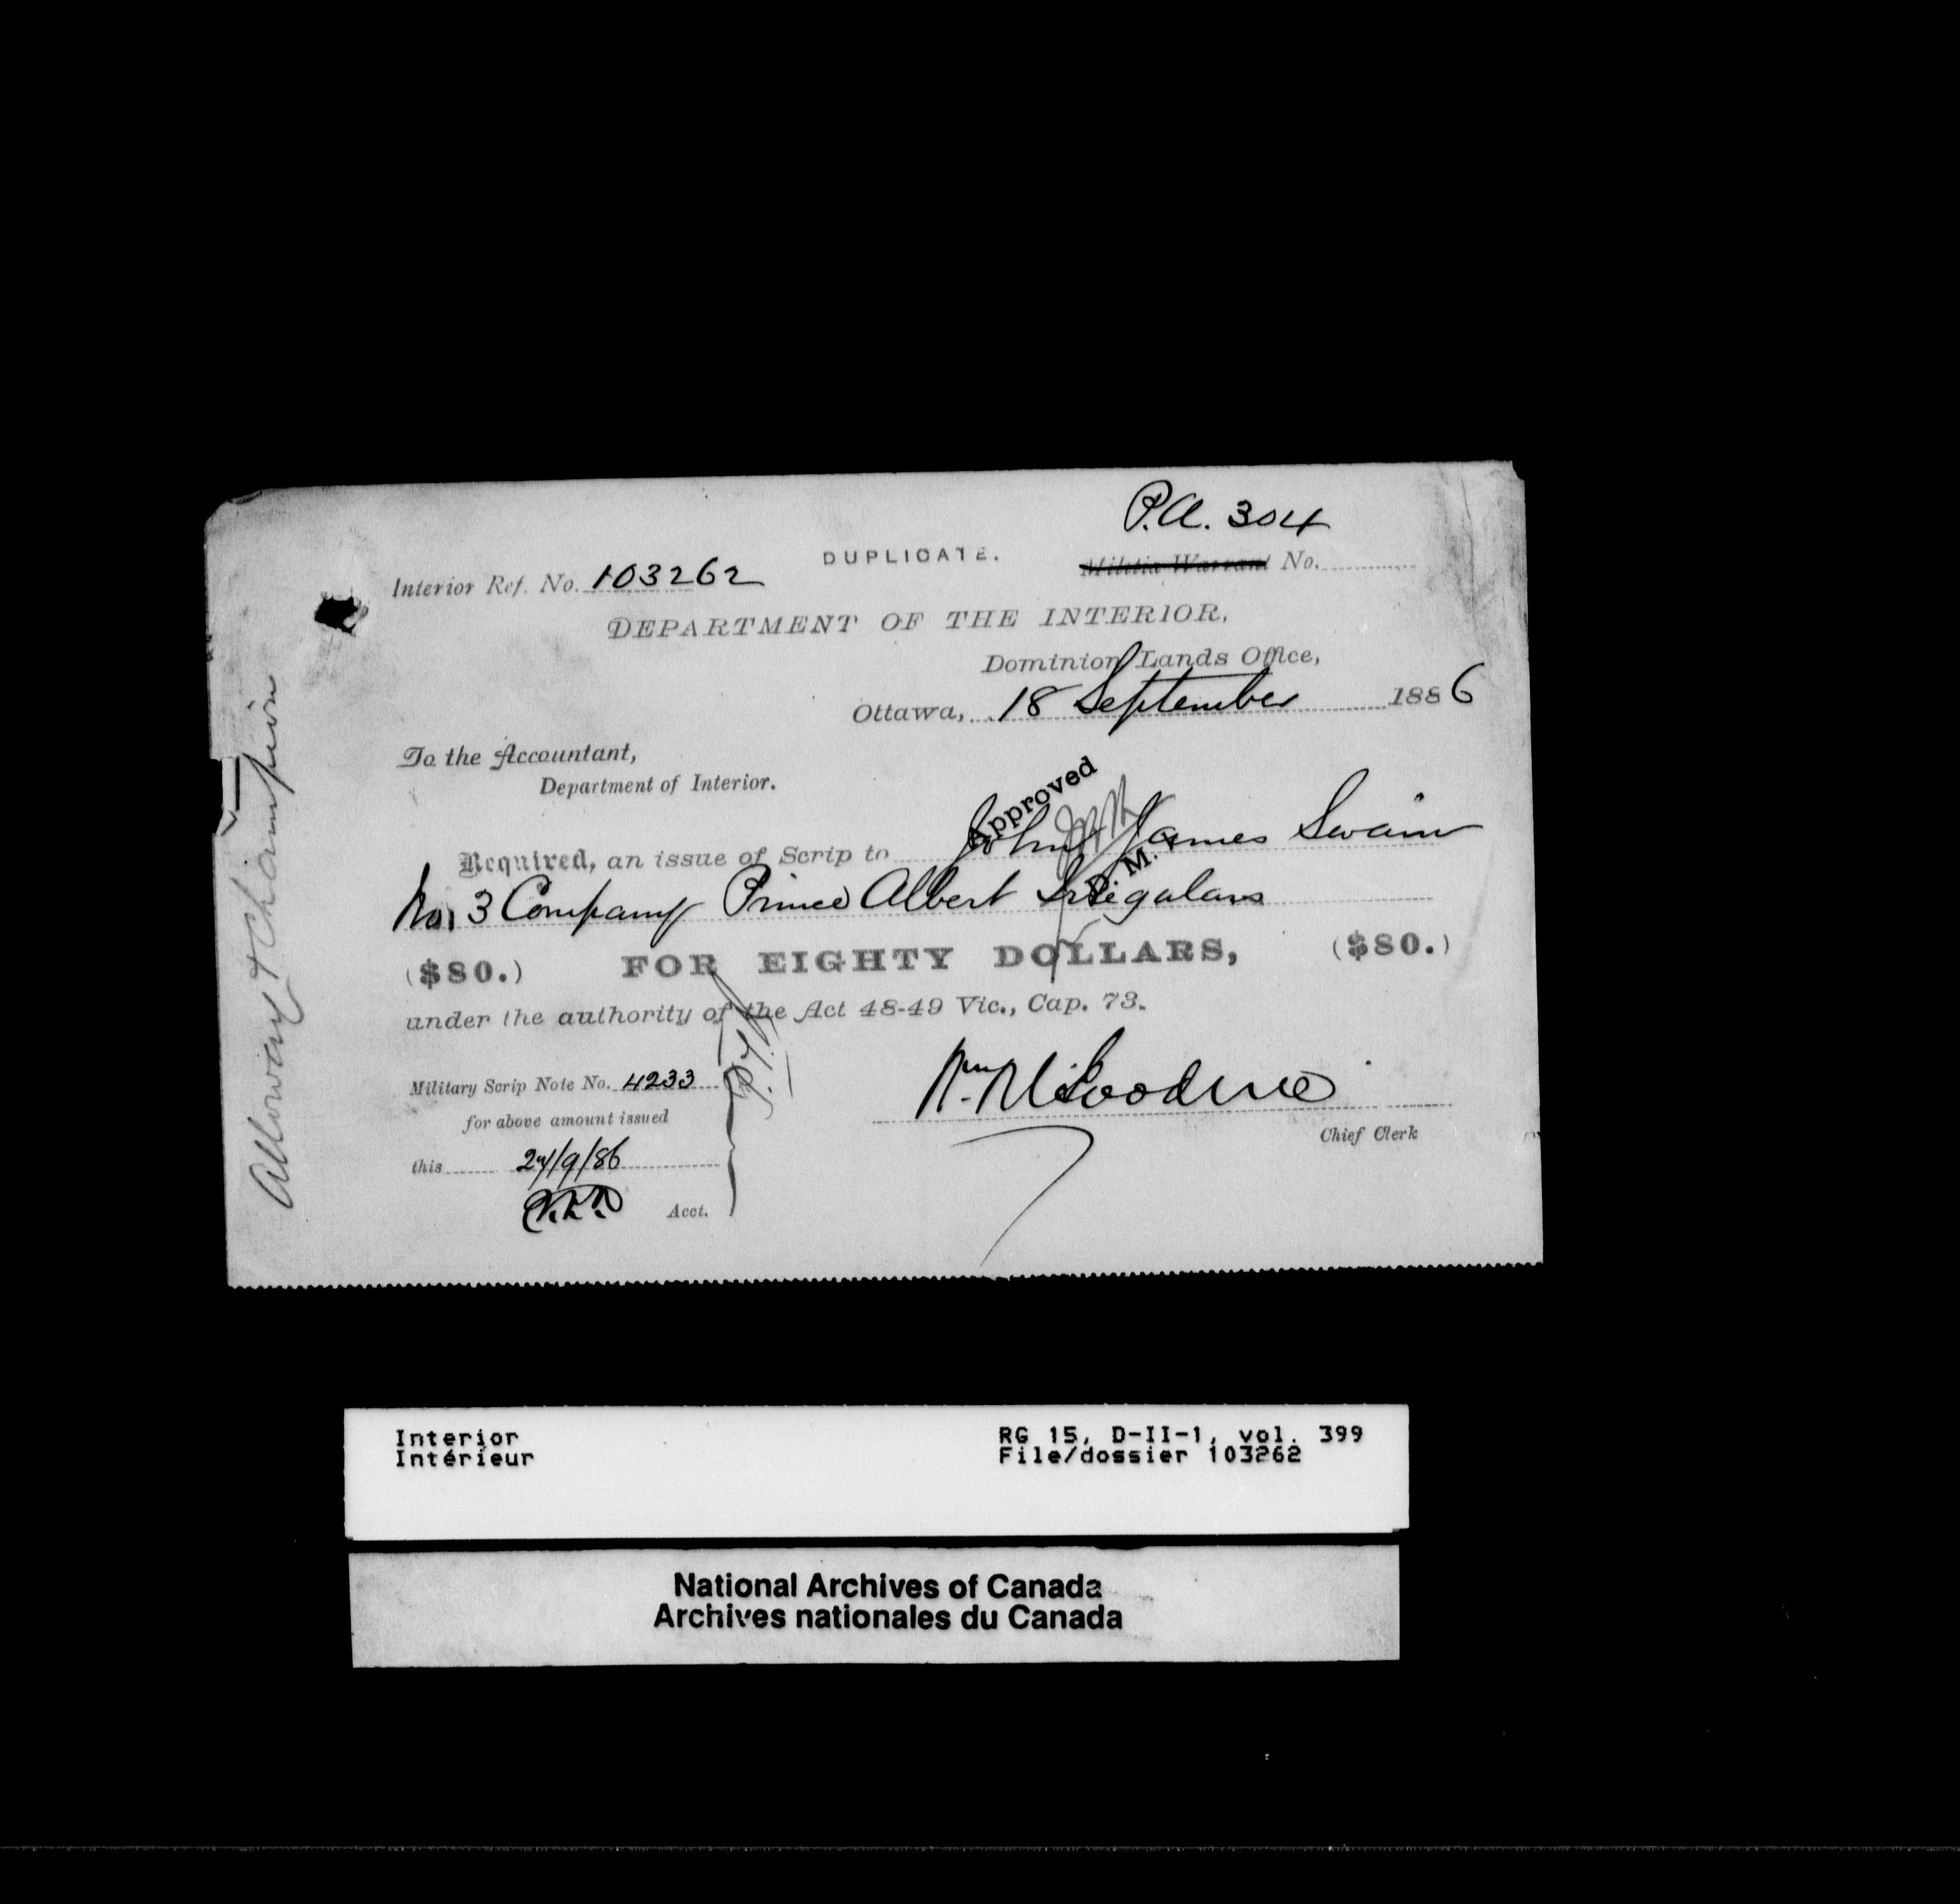 P.A. 304
DUPLICATE.
Interior Ref. No. 103262
Militia Warrant No.
DEPARTMENT OF THE INTERIOR,
Dominion Lands Office,
Ottawa, 18 September 1886
To the Accountant,
Department of Interior.
Approved
D. M. I.
Required, an issue of Scrip to John James Swain
No. 3 Company Prince Albert Irregulars
($80.) FOR EIGHTY DOLLARS, ($80.)
under the authority of the Act 48-49 Vic., Cap. 73.
Military Scrip Note No. 4233
for above amount issued
Chief Clerk
this 24/9/86
Acct.
Alloway & Champion
Interior
Intérieur
RG 15, D-II-1, vol. 399
File/dossier 103262
National Archives of Canada
Archives nationales du Canada